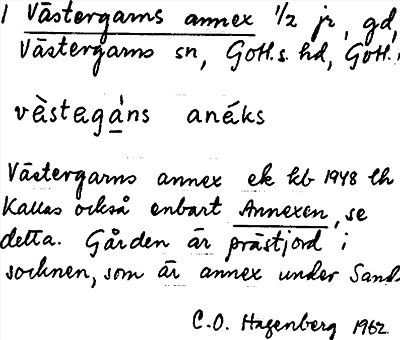 1 Västergarns annex 1/2 jr, gd,
Västergarns sn, Gotl.s. hd, Gotl.
vàstagáns anáks
Västergarns annex ek kb 1948 lh
Kallas också enbart Annexen, se
detta. Gården är prästjord i
socknen, som är annex under Sand
C.O. Hagenberg 1962